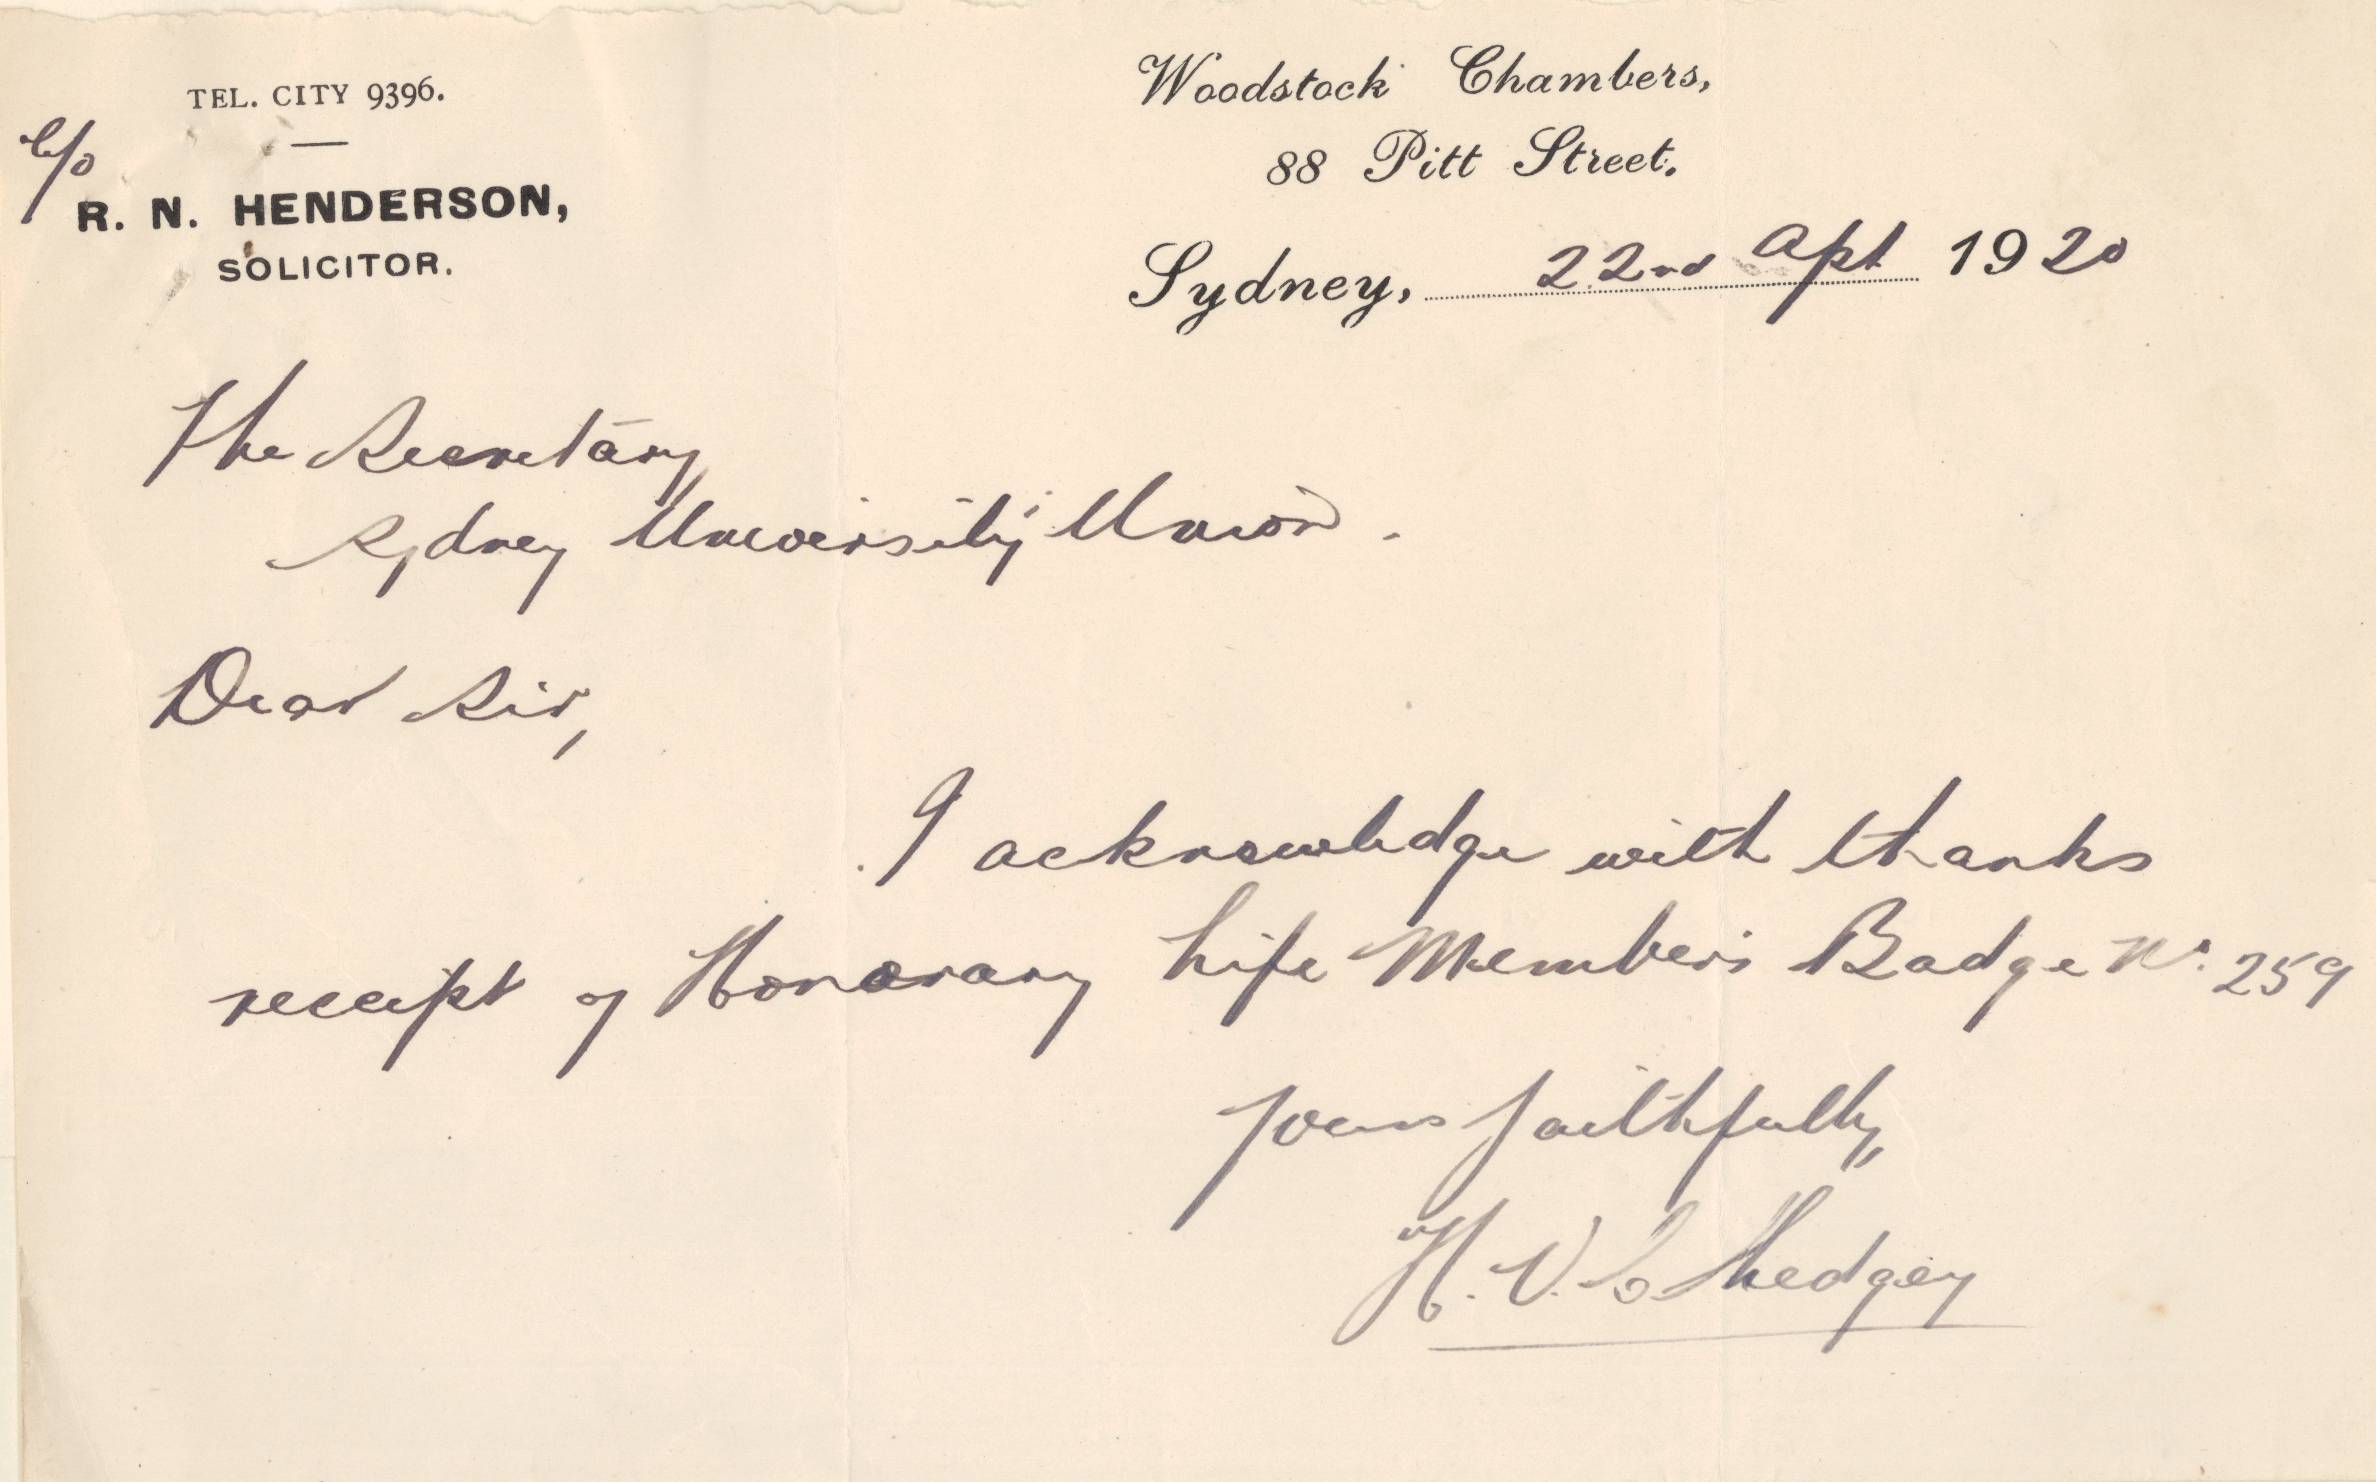 TEL. CITY 9396.
C/o
R. N. HENDERSON,
SOLICITOR.
Woodstock Chambers,
88 Pitt Street.
Sydney, 22nd Apl 1920
The Secretary
Sydney University Union.
Dear Sir,
I acknowledge with thanks
receipt of Honorary Life Members Badge No. 259
Yours faithfully,
H. V. C. Thedgey